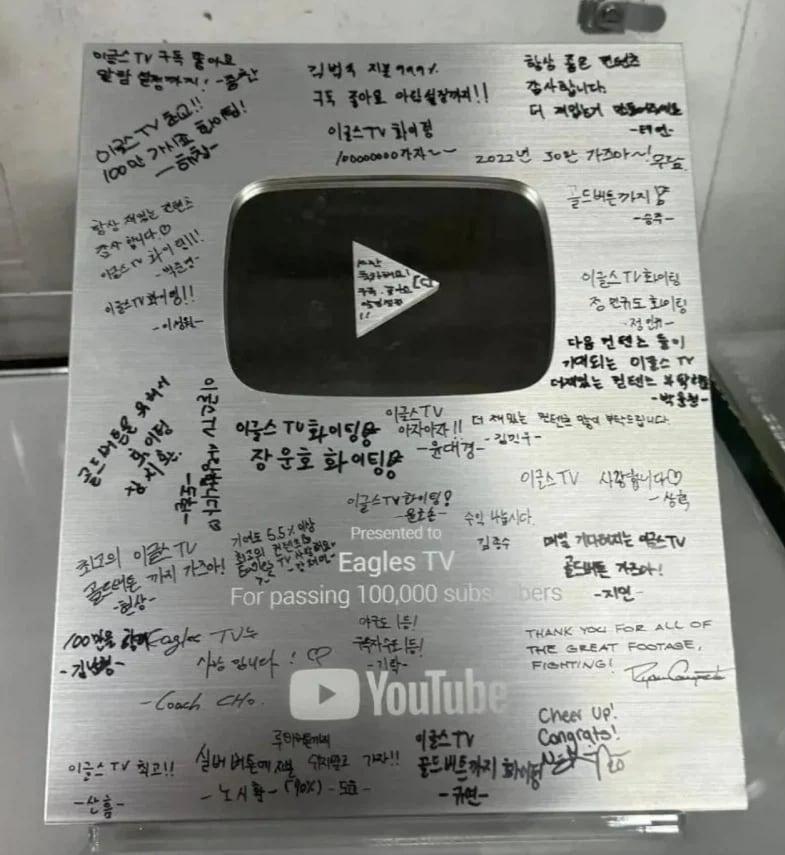 이글스TV 구독 좋아요
알람 설정까지!
김범수 지분 99.9%
구독 좋아요 알림설정까지!!
항상 좋은 컨텐츠
감사합니다.
더 재밌는거
-태연-
이글스TV 최고!!
100만 가시죠 화이팅!
이글스TV 화이팅
10000000가자~~
2022년 30만 가즈아~!
골드버튼까지
-승주-
항상 재밌는 컨텐츠
감사합니다.♡
이글스TV 화이팅!!!
이글스TV 화이팅!!
이글스TV화이팅
정민규도 화이팅
-정민규-
다음 컨텐츠들이
기대되는 이글스TV
더재밌는 컨텐츠
-박윤철-
골드버튼을 위하여
화이팅
장시환.
이글스TV 사랑합니다♡
이글스TV화이팅
장운호 화이팅
이글스TV
아자아자!!
-윤대경-
더 재밌는 컨텐츠 많이 부탁드립니다.
-김민우-
이글스TV 사랑합니다♡
-상혁
이글스TV화이팅
-윤호솔-
수익 나눕시다.
김종수
매일 기다려지는 이글스TV
골드버튼 가즈아!
-지민-
최고의 이글스TV
골드버튼까지 가즈아!
-현상-
기여도 5.5% 이상
최고의 컨텐츠
Presented to
Eagles TV
For passing 100,000 subscribers
100만을 향해
Eagles TV는
사랑입니다!♡
-Coach CHO.
야구도 1등!
구독자수도 1등!
THANK YOU FOR ALL OF
THE GREAT FOOTAGE,
FIGHTING!
YouTube
Cheer up!
Congrats!
이글스TV 최고!!
-산흠-
루비버튼까지
실버버튼에 가자!!
-노시환-(90%)
이글스TV
골드버튼까지 화이팅
-규연-